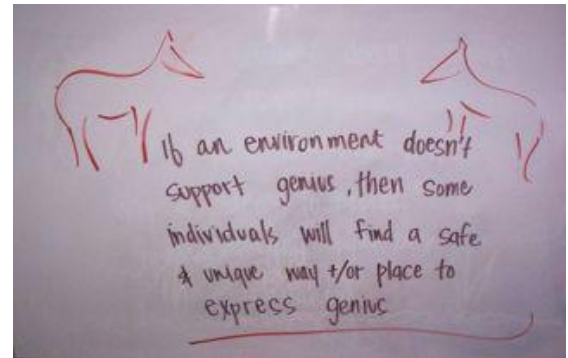 If an environment doesn't
support genius, then some
individuals will find a safe
& unique way +/or place to
express genius